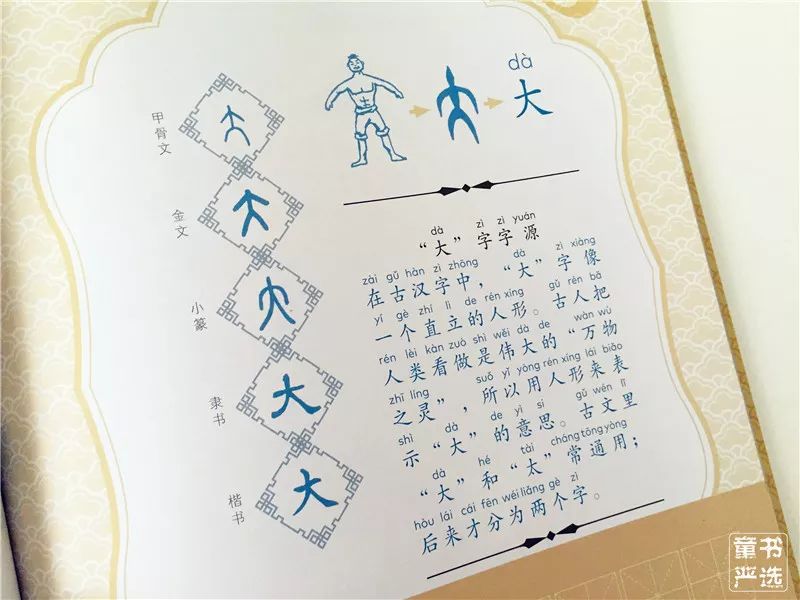 甲骨文
金文
小篆
隶书
楷书
大
大
dà
大
dà zì zì yuán
“大”字字源
zài gǔ hàn zì zhōng dà zì xiàng
在古汉字中，“大”字像
yí gè zhí lì de rén xíng gǔ rén bǎ
一个直立的人形。古人把
rén lèi kàn zuò shì wěi dà de wàn wù
人类看做是伟大的“万物
zhī líng suǒ yǐ yòng rén xíng lái biǎo
之灵”，所以用人形来表
shì dà de yì si gǔ wén lǐ
示“大”的意思。古文里
dà hé tài cháng tōng yòng
“大”和“太”常通用；
hòu lái cái fēn wéi liǎng gè zì
后来才分为两个字。
童书
严选